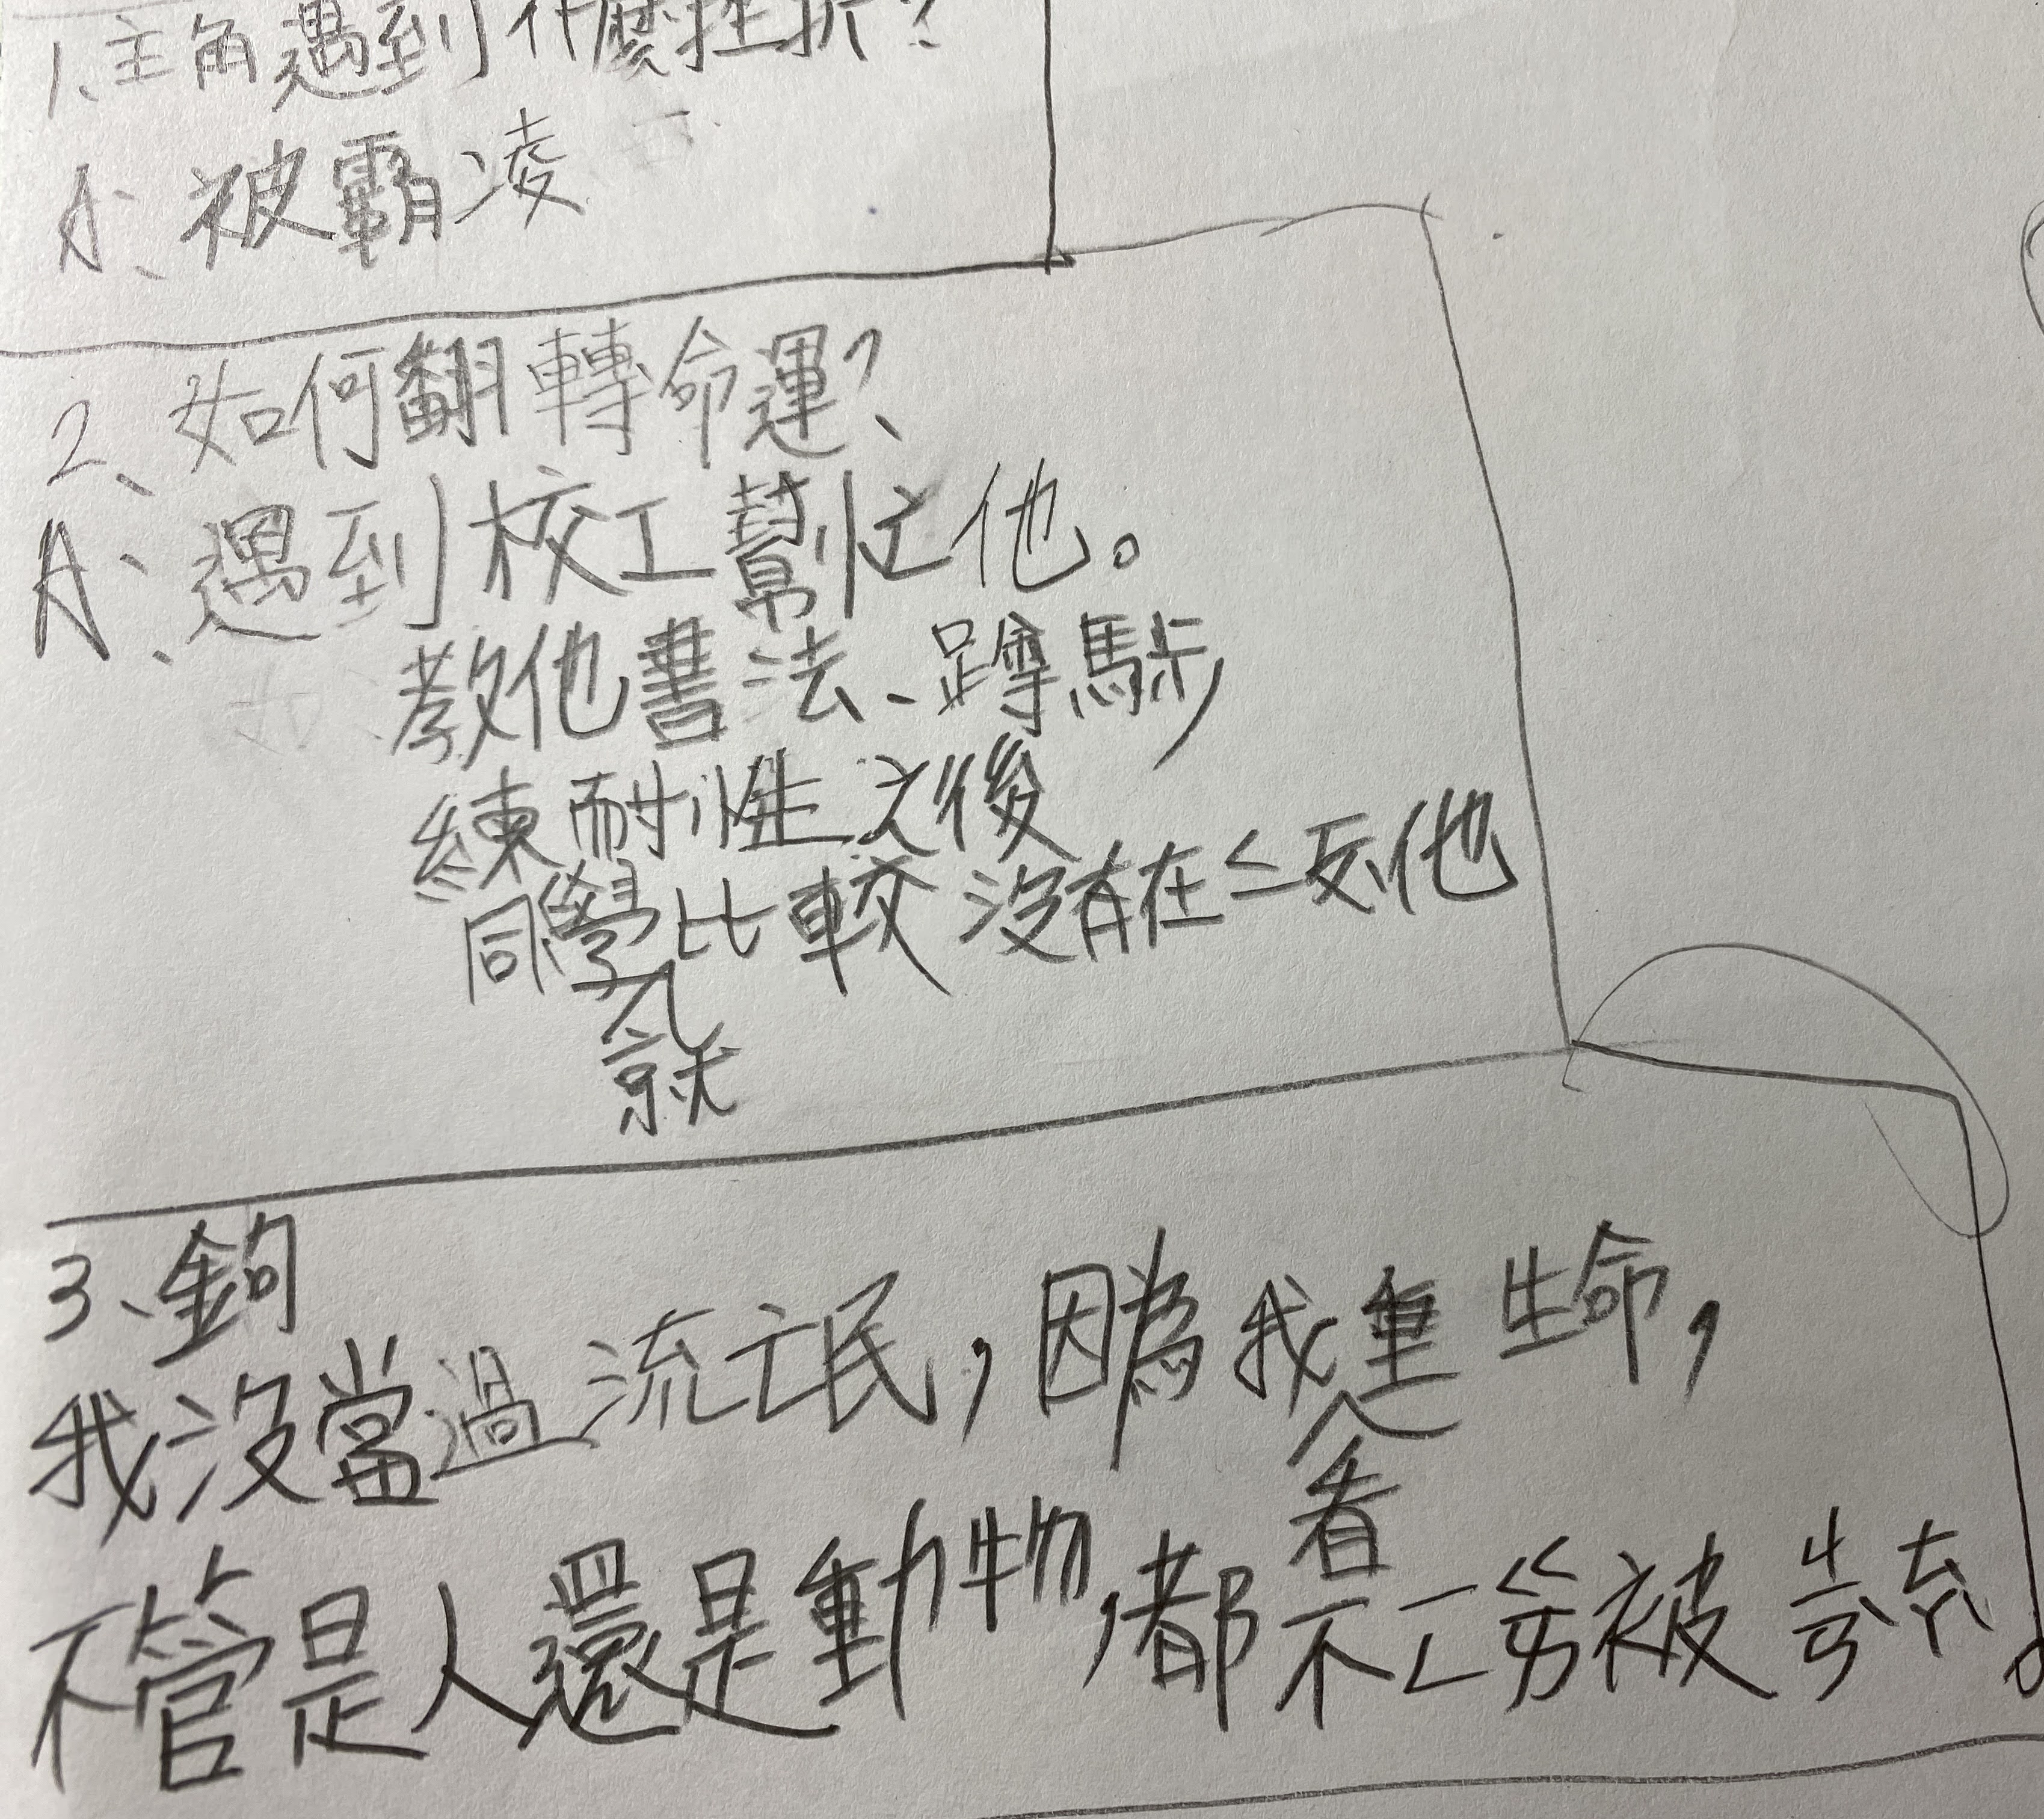 1、主角遇到什麼挫折?
A、被霸凌
2、如何翻轉命運?
A、遇到校工幫忙他。
教他書法、蹲馬步,
練耐性之後
同學比較沒有在他
就
3、鉤
我沒當過流氓,因為我重生命,
看
不管是人還是動物,都不被